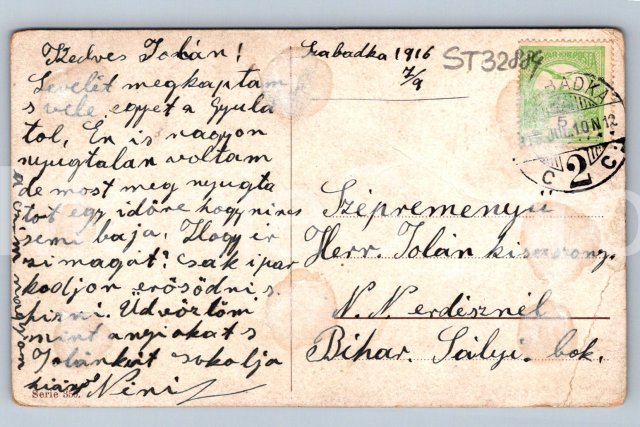 Kedves Jolán!
Levelét megkaptam
s vele egyet a Gyulá
tól, Én is nagyon
nyugtalan voltam
de most meg nyugta
tot egy időre hogy nincs
semi baja. Hogy ér
zi magát? Csak ipar
kodjon erősödni s
hizni. Üdvözlöm
mint anyiokat s
Jolánkát sokolja
Néni
Serie 350.
Szabadka 1916
7/9
ST32884
MAGYAR KIR. POSTA
BADKA
5
JUL. 10 N 12
C 2 C
Szépremenyű
Herr. Jolán kisasszony.
N. N erdésznél
Bihar. Sályi. bok.